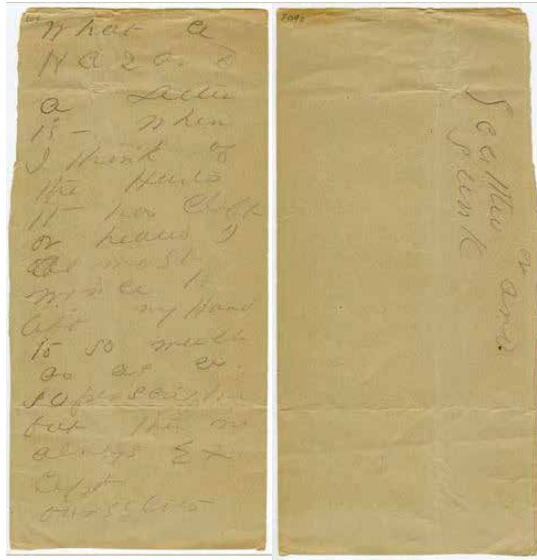 What a
Hazard
a Letter
is - When
I think of
the Hearts
it has Cleft
or healed I
almost
wince to
lift my Hand
to so much
as a
superscription
but then we
always Ex
cept
ourselves
Scuttled and
Sunk